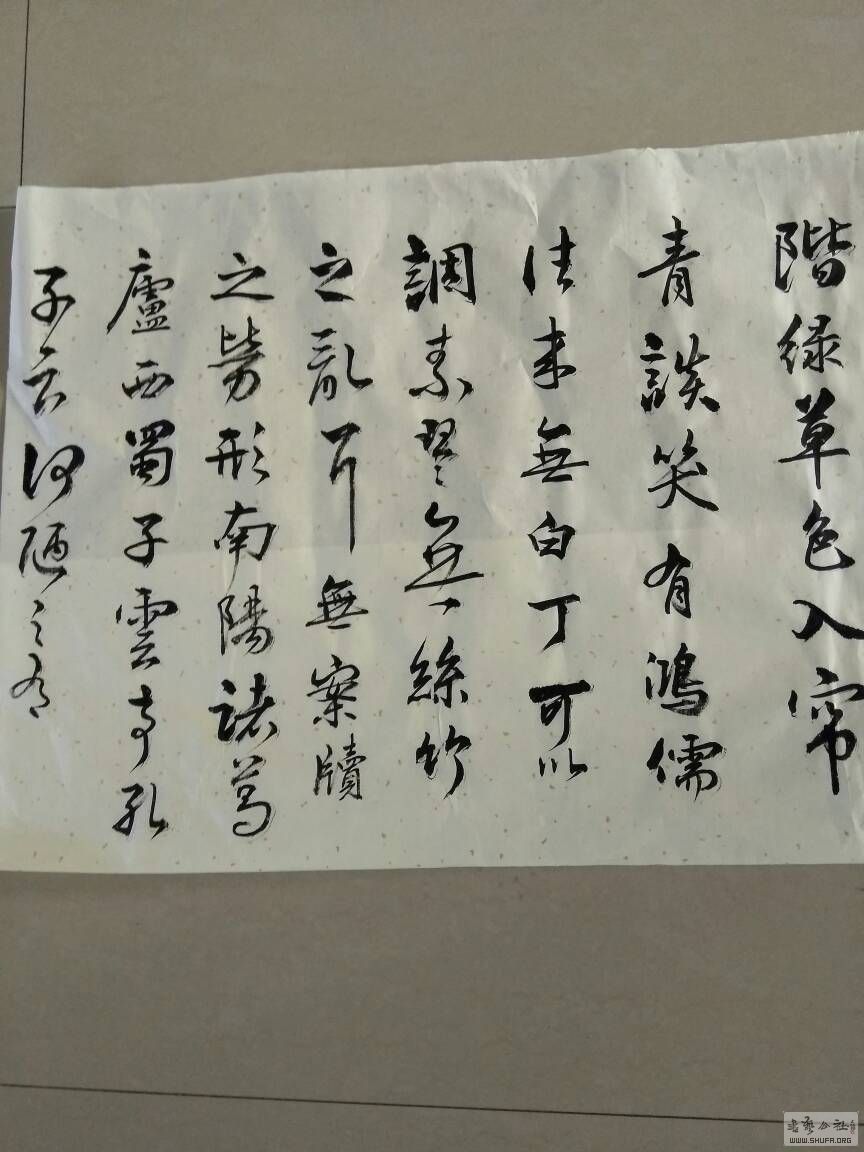 階绿草色入帘
青談笑有鴻儒
往来無白丁可以
調素琴無絲竹
之亂耳無案牘
之勞形南陽諸葛
廬西蜀子雲亭孔
子云何陋之有
書藝公社
WWW.SHUFA.ORG